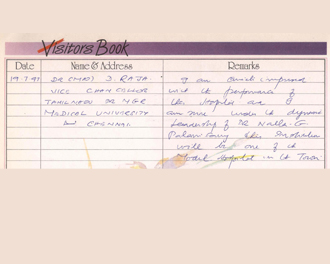 Visitors Book
Date Name & Address Remarks
19.7.97 DR (MRS) D. RAJA I am
VICE CHANCELLOR with the performance of
TAMILNADU DR MGR the Hospital and
MEDICAL UNIVERSITY am sure under the
CHENNAI leadership of DR Nalla. G
Palani the
will be one of the
Model Hospital in the Town